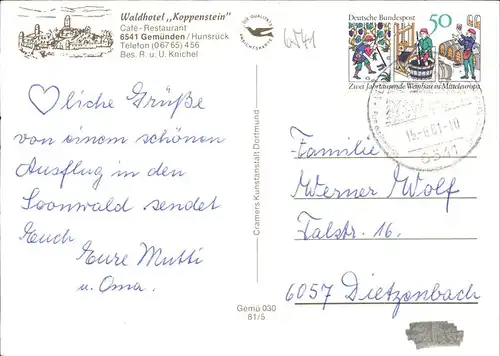 Waldhotel „Koppenstein"
Café-Restaurant
6541 Gemünden / Hunsrück
Telefon (0 67 65) 4 56
Bes. R. u. U. Knichel
Deutsche Bundespost 50
Zwei Jahrtausende Weinbau in Mitteleuropa
-10
6541
♡liche Grüße
von einem schönen
Ausflug in den
Soonwald sendet
Euch
Eure Mutti
u. Oma.
Cramers Kunstanstalt Dortmund
Gemü 030
81/5
Familie
Werner Wolf
Talstr. 16.
6057 Dietzenbach